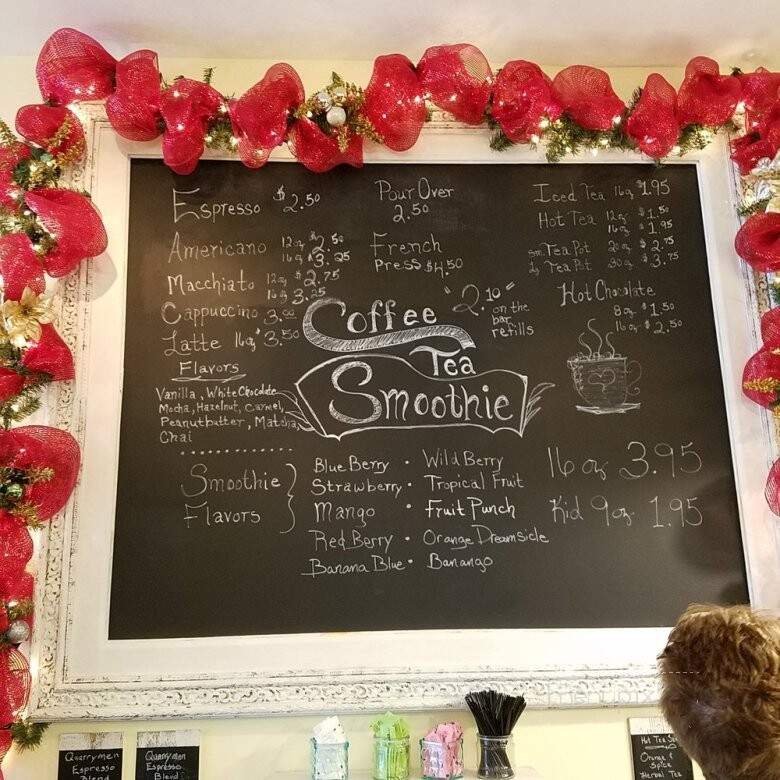 Espresso $2.50
Americano 12oz $2.50
16oz $3.25
Macchiato 12oz $2.75
16oz 3.25
Cappuccino 3.00
Latte 16oz $3.50
Flavors
Vanilla, White Chocolate
Mocha, Hazelnut, Carmel,
Peanutbutter, Matcha,
Chai
Pour Over
2.50
French
Press $4.50
"2.10"
on the
bar
refills
Iced Tea 16oz $1.95
Hot Tea 12oz $1.50
16oz $1.95
sm Tea Pot 20oz $2.75
lg Tea Pot 30oz $3.75
Hot Chocolate
8oz $1.50
16oz $2.50
Coffee
Tea
Smoothie
Smoothie
Flavors
BlueBerry • Wild Berry
Strawberry • Tropical Fruit
Mango • Fruit Punch
Red Berry • Orange Dreamsicle
Banana Blue • Banango
16 oz 3.95
Kid 9oz 1.95
Quarrymen
Espresso
Blend
Quarrymen
Espresso
Blend
Hot Tea
Orange &
Spice
Herbal Tea